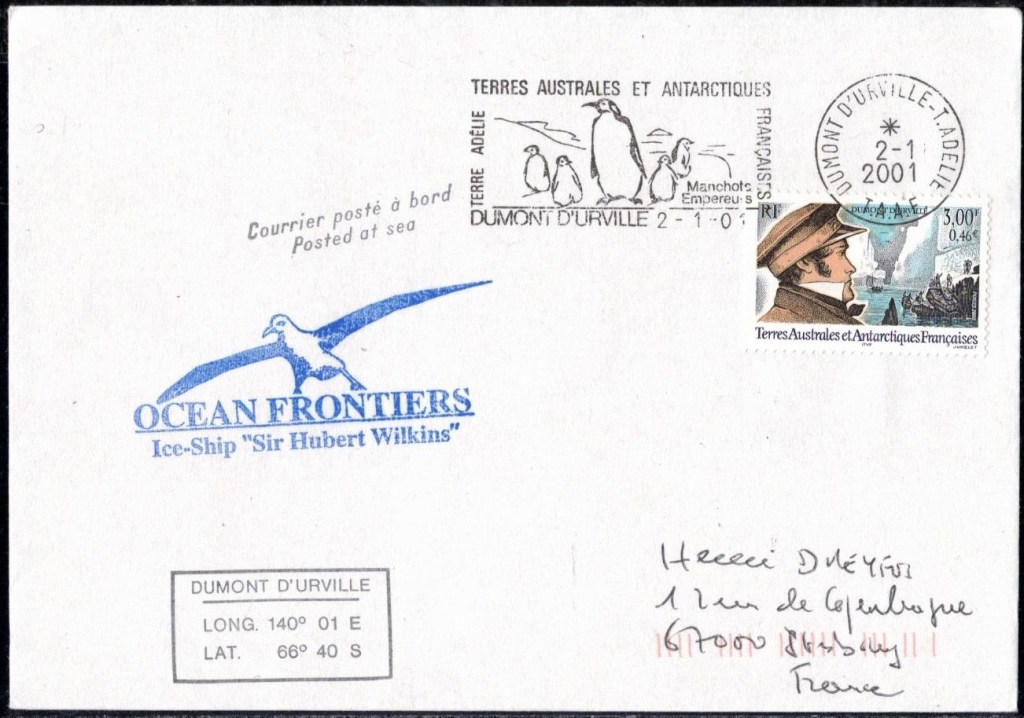 TERRES AUSTRALES ET ANTARCTIQUES
FRANÇAISES
TERRE ADÉLIE
Manchots
Empereurs
DUMONT D'URVILLE 2-1-01
DUMONT D'URVILLE-T.ADELIE
*
2-1
2001
T.A.A.F.
Courrier posté à bord
Posted at sea
RF
3,00F
0,46€
Terres Australes et Antarctiques Françaises
OCEAN FRONTIERS
Ice-Ship "Sir Hubert Wilkins"
DUMONT D'URVILLE
LONG. 140° 01 E
LAT. 66° 40 S
Henri
1 rue de Copenhague
67000 Strasbourg
France